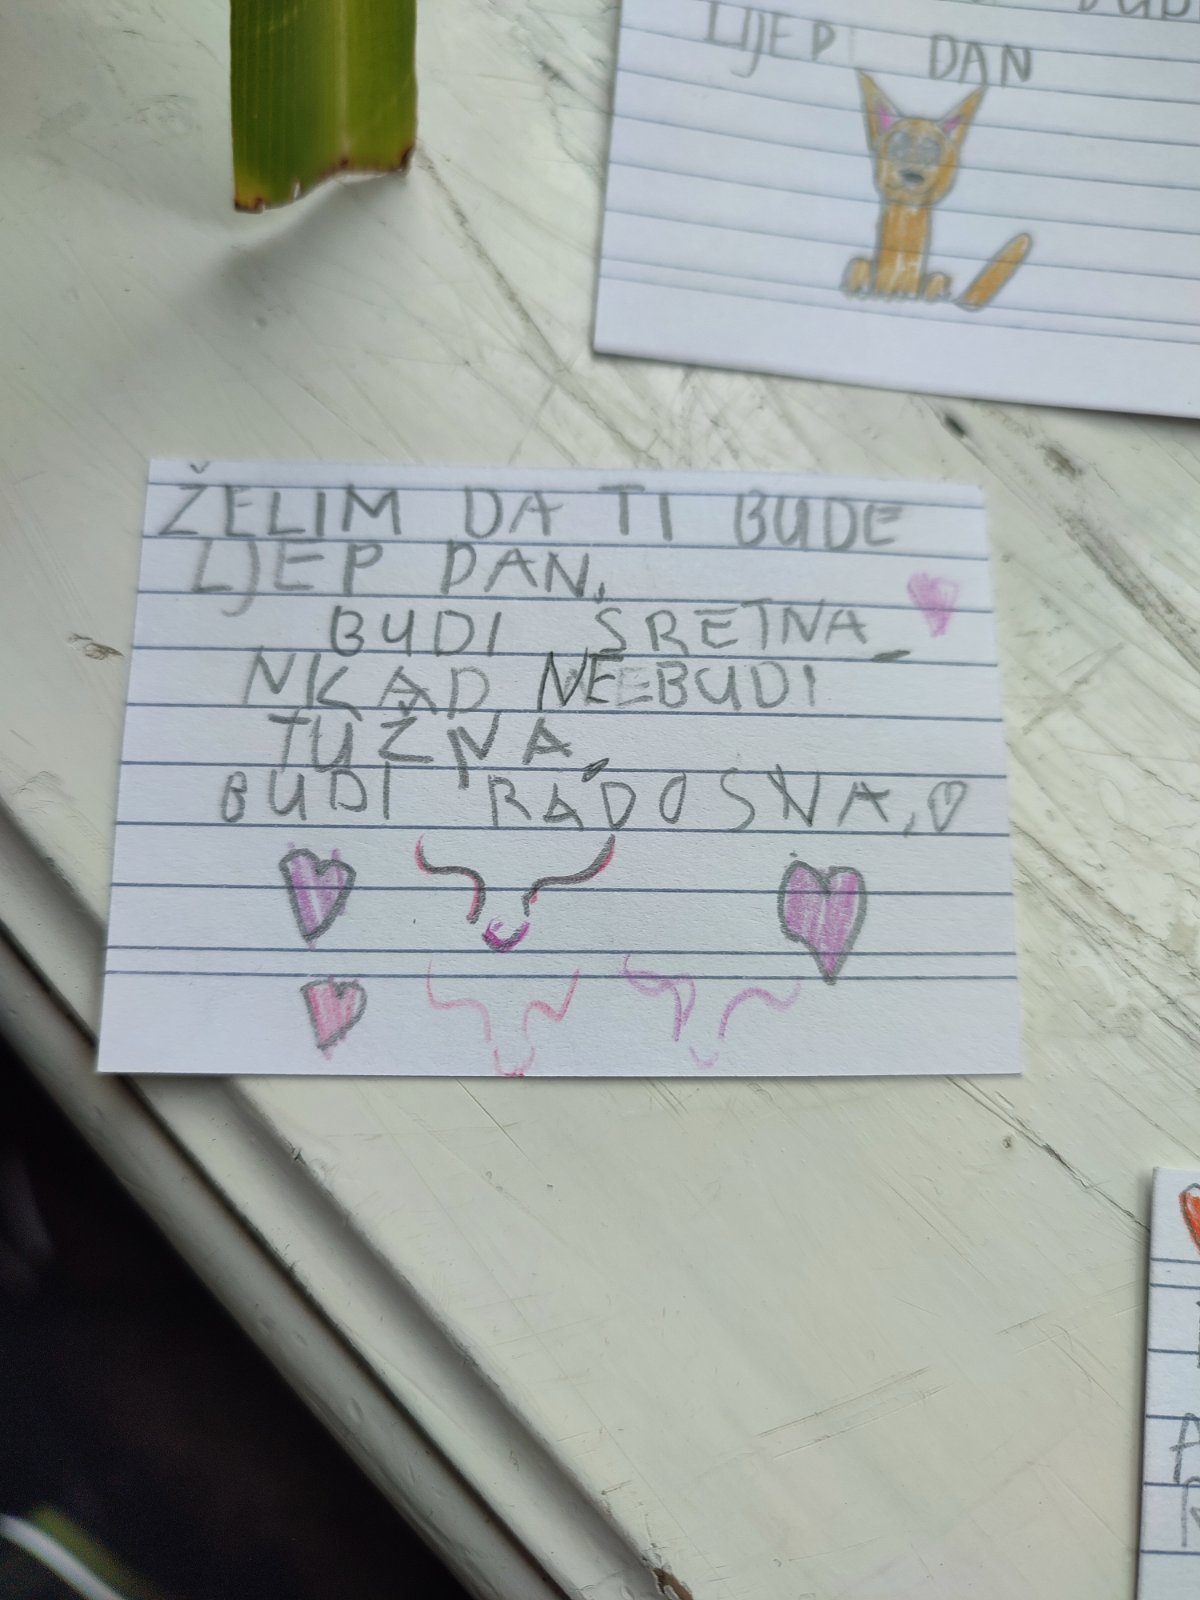 LIJEP DAN
ŽELIM DA TI BUDE
LJEP DAN.
BUDI SRETNA
NKAD NEEBUDI
TUŽNA.
BUDI RADOSNA.